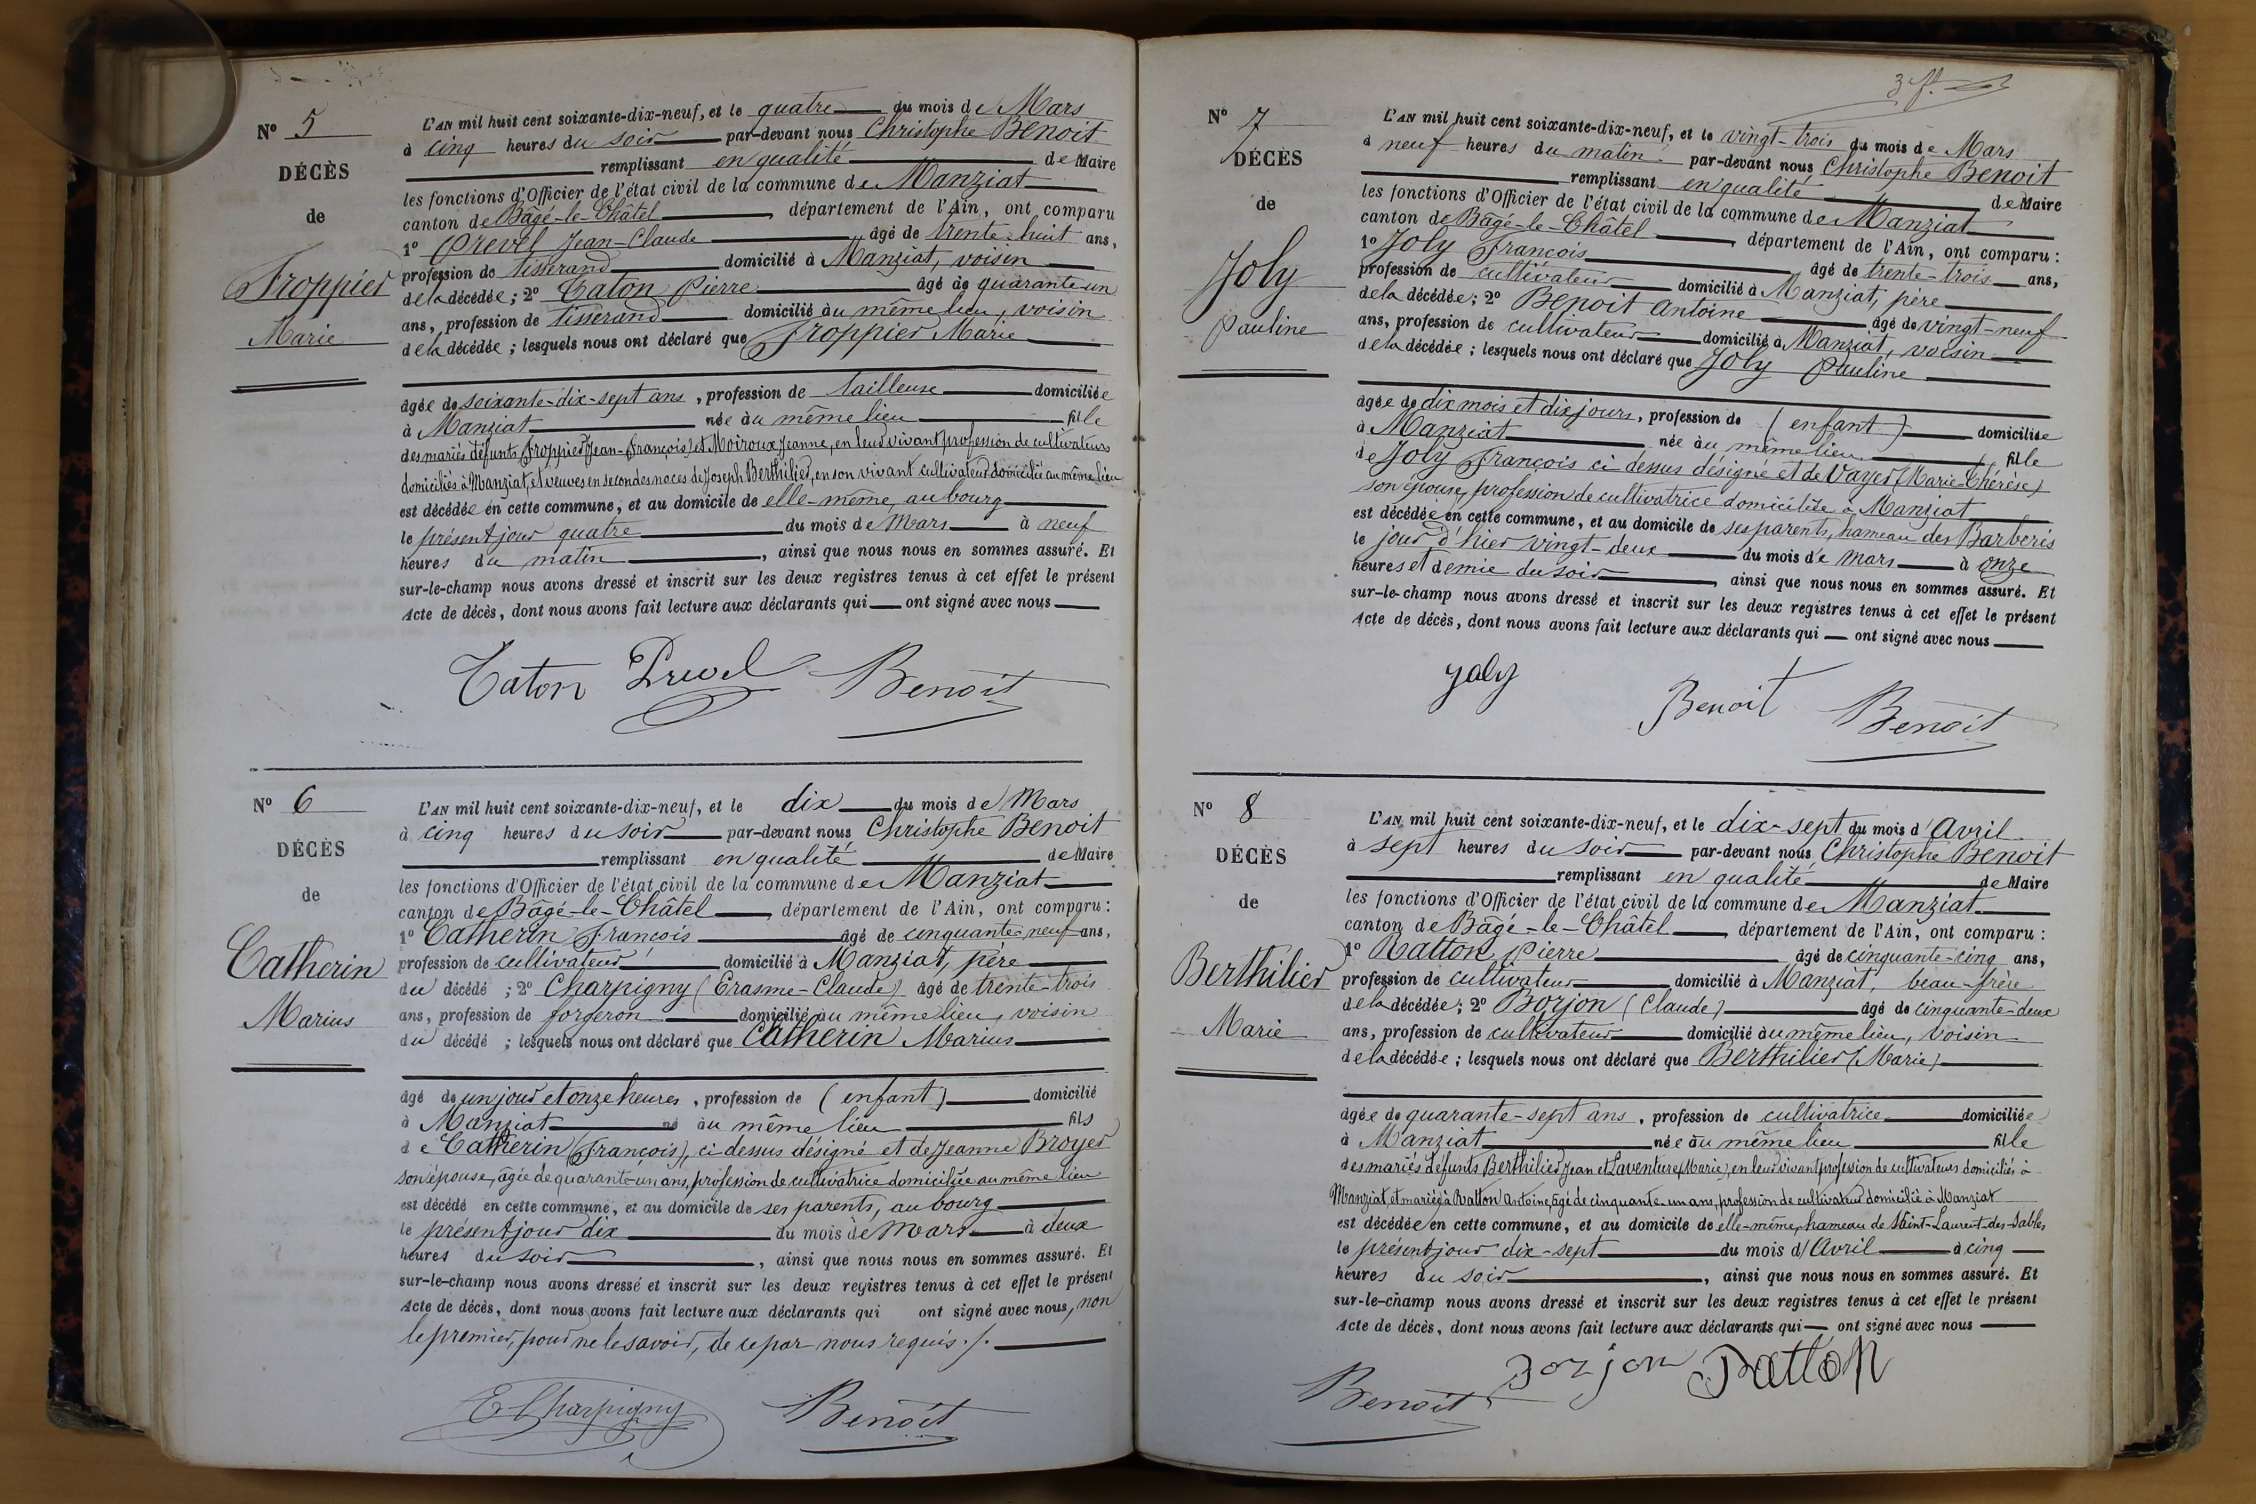 Nº 5
DÉCÈS
de
Froppier
Marie
L'AN mil huit cent soixante-dix-neuf, et le quatre du mois de Mars
à cinq heures du soir par-devant nous Christophe Benoit
remplissant en qualité de Maire
les fonctions d'Officier de l'état civil de la commune de Manziat
canton de Bâgé-le-Châtel, département de l'Ain, ont comparu
1º Prevel Jean-Claude âgé de trente-huit ans,
profession de tisserand domicilié à Manziat, voisin
de la décédée; 2º Caton Pierre âgé de quarante-un
ans, profession de tisserand domicilié au même lieu, voisin
de la décédée; lesquels nous ont déclaré que Froppier Marie
âgée de soixante-dix-sept ans, profession de tailleuse domiciliée
à Manziat née au même lieu fille
des mariés défunts Froppier (Jean-François) et Moiroux Jeanne, en leur vivant profession de cultivateurs
domiciliés à Manziat, et veuve en secondes noces de Joseph Berthilier, en son vivant cultivateur domicilié au même lieu
est décédée en cette commune, et au domicile de elle-même, au bourg
le présent jour quatre du mois de Mars à neuf
heures du matin, ainsi que nous nous en sommes assuré. Et
sur-le-champ nous avons dressé et inscrit sur les deux registres tenus à cet effet le présent
Acte de décès, dont nous avons fait lecture aux déclarants qui ont signé avec nous
Caton Prevel Benoit
Nº 6
DÉCÈS
de
Catherin
Marius
L'AN mil huit cent soixante-dix-neuf, et le dix du mois de Mars
à cinq heures du soir par-devant nous Christophe Benoit
remplissant en qualité de Maire
les fonctions d'Officier de l'état civil de la commune de Manziat
canton de Bâgé-le-Châtel, département de l'Ain, ont comparu:
1º Catherin François âgé de cinquante-neuf ans,
profession de cultivateur domicilié à Manziat, père
du décédé; 2º Charpigny (Erasme-Claude) âgé de trente-trois
ans, profession de forgeron domicilié au même lieu, voisin
du décédé; lesquels nous ont déclaré que Catherin Marius
âgé de un jour et onze heures, profession de (enfant) domicilié
à Manziat né au même lieu fils
de Catherin (François), ci dessus désigné et de Jeanne Broyer
son épouse, âgée de quarante-un ans, profession de cultivatrice domiciliée au même lieu
est décédé en cette commune, et au domicile de ses parents, au bourg
le présent jour dix du mois de Mars à deux
heures du soir, ainsi que nous nous en sommes assuré. Et
sur-le-champ nous avons dressé et inscrit sur les deux registres tenus à cet effet le présent
Acte de décès, dont nous avons fait lecture aux déclarants qui ont signé avec nous, non
le premier, pour ne le savoir, de ce par nous requis./.
E Charpigny Benoit
3 ft.
Nº 7
DÉCÈS
de
Joly
Pauline
L'AN mil huit cent soixante-dix-neuf, et le vingt-trois du mois de Mars
à neuf heures du matin par-devant nous Christophe Benoit
remplissant en qualité de Maire
les fonctions d'Officier de l'état civil de la commune de Manziat
canton de Bâgé-le-Châtel, département de l'Ain, ont comparu:
1º Joly François âgé de trente-trois ans,
profession de cultivateur domicilié à Manziat, père
de la décédée; 2º Benoit Antoine âgé de vingt-neuf
ans, profession de cultivateur domicilié à Manziat, voisin
de la décédée; lesquels nous ont déclaré que Joly Pauline
âgée de dix mois et dix jours, profession de (enfant) domiciliée
à Manziat née au même lieu fille
de Joly François ci dessus désigné et de Vayer (Marie-Thérèse)
son épouse, profession de cultivatrice domiciliée à Manziat
est décédée en cette commune, et au domicile de ses parents, hameau des Barberis
le jour d'hier vingt-deux du mois de Mars à onze
heures et demie du soir, ainsi que nous nous en sommes assuré. Et
sur-le-champ nous avons dressé et inscrit sur les deux registres tenus à cet effet le présent
Acte de décès, dont nous avons fait lecture aux déclarants qui ont signé avec nous
Joly Benoit Benoit
Nº 8
DÉCÈS
de
Berthilier
Marie
L'AN mil huit cent soixante-dix-neuf, et le dix-sept du mois d'Avril
à sept heures du soir par-devant nous Christophe Benoit
remplissant en qualité de Maire
les fonctions d'Officier de l'état civil de la commune de Manziat
canton de Bâgé-le-Châtel, département de l'Ain, ont comparu:
1º Ratton Pierre âgé de cinquante-cinq ans,
profession de cultivateur domicilié à Manziat, beau-frère
de la décédée; 2º Borjon (Claude) âgé de cinquante-deux
ans, profession de cultivateur domicilié au même lieu, voisin
de la décédée; lesquels nous ont déclaré que Berthilier (Marie)
âgée de quarante-sept ans, profession de cultivatrice domiciliée
à Manziat née au même lieu fille
des mariés défunts Berthilier Jean et Laventure (Marie), en leur vivant profession de cultivateurs domiciliés à
Manziat, et mariée à Ratton Antoine, âgé de cinquante-un ans, profession de cultivateur domicilié à Manziat
est décédée en cette commune, et au domicile de elle-même, hameau de Saint-Laurent-des-Sables
le présent jour dix-sept du mois d'Avril à cinq
heures du soir, ainsi que nous nous en sommes assuré. Et
sur-le-champ nous avons dressé et inscrit sur les deux registres tenus à cet effet le présent
Acte de décès, dont nous avons fait lecture aux déclarants qui ont signé avec nous
Benoit Borjon Ratton